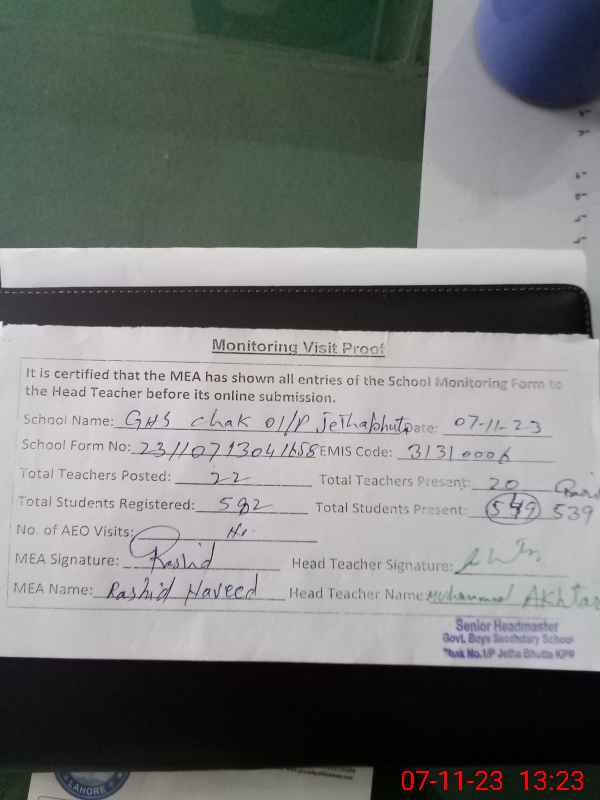 Monitoring Visit Proof
It is certified that the MEA has shown all entries of the School Monitoring Form to
the Head Teacher before its online submission.
School Name: GHS Chak 01/P Jethabhutta Date: 07-11-23
School Form No: 23110713041658 EMIS Code: 31310006
Total Teachers Posted: 22 Total Teachers Present: 20
Total Students Registered: 592 Total Students Present: 549 539
No. of AEO Visits:
MEA Signature: Rashid Head Teacher Signature:
MEA Name: Rashid Naveed Head Teacher Name: Muhammad Akhtar
Senior Headmaster
Govt. Boys Secondary School
Chak No.1/P Jetha Bhutta KPR
LAHORE
07-11-23 13:23